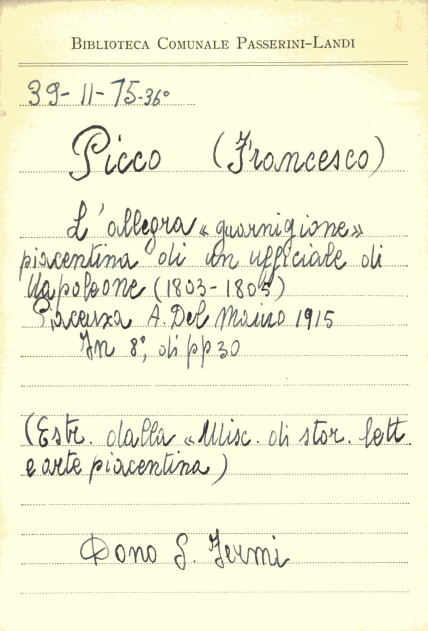 BIBLIOTECA COMUNALE PASSERINI-LANDI
39-11-75-36°
Picco (Francesco)
L'allegra «guarnigione»
piacentina di un ufficiale di
Napoleone (1803-1805)
Piacenza A. Del Maino 1915
In 8°, di pp 30
(Estr. dalla «Misc. di stor. lett.
e arte piacentina)
Dono S. Fermi